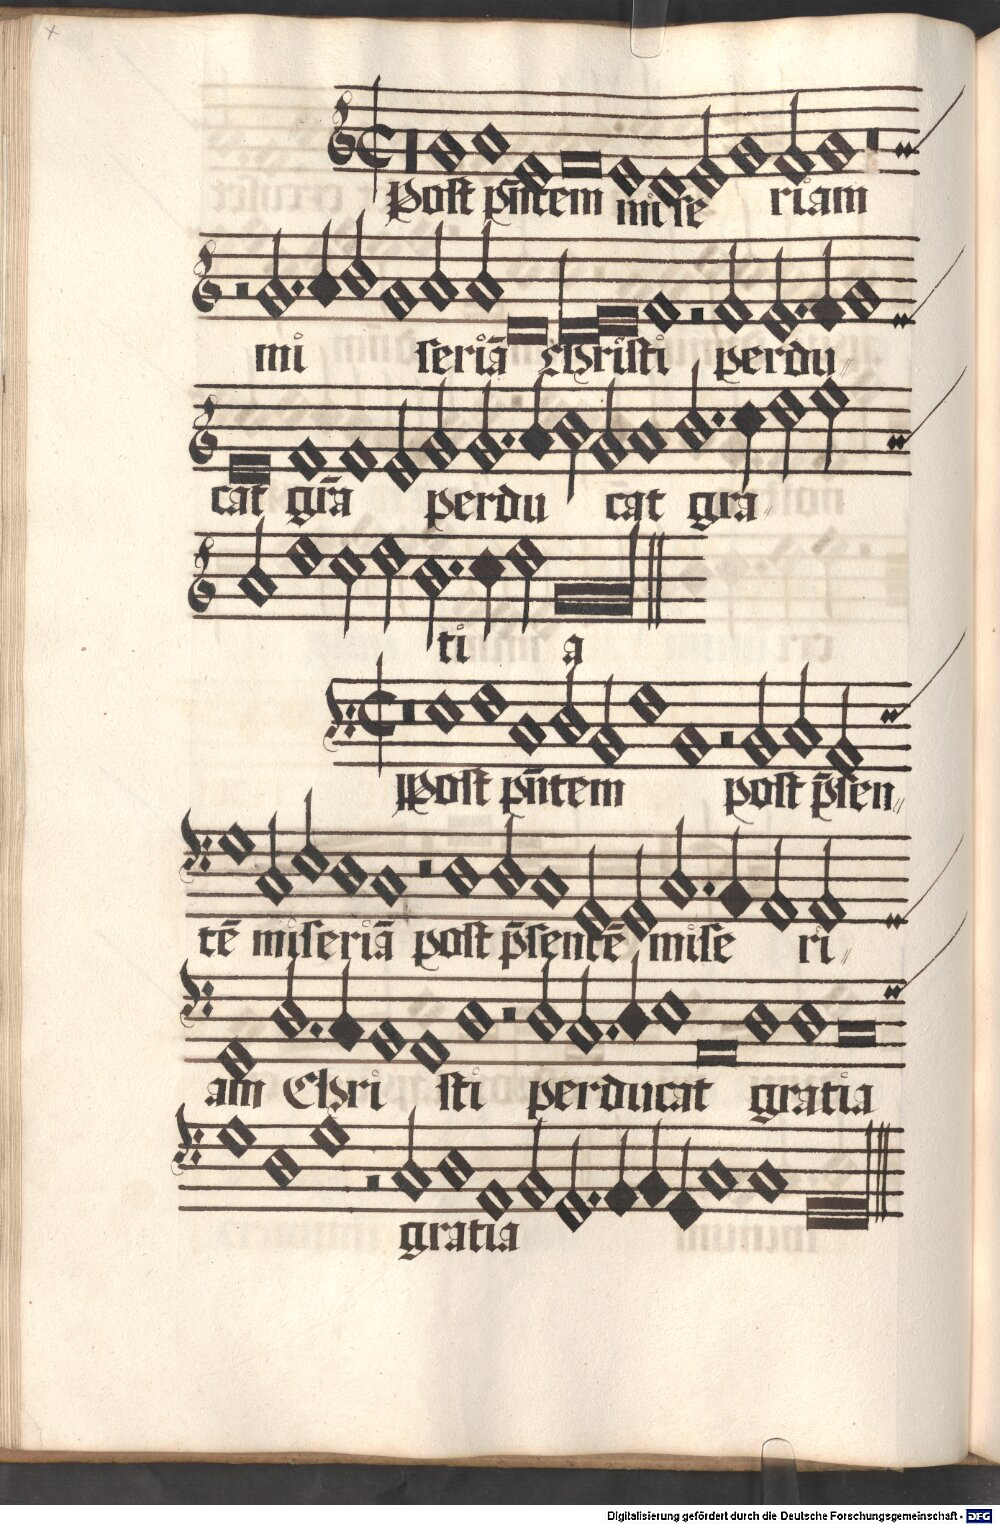 Post pn̄tem mise riam
mi seriā Christi perdu
cat gr̄a perdu cat gra
ti a
Post pn̄tem post p̄sen
tē miseriā post p̄sentē mise ri
am Christi perducat gratia
gratia
Digitalisierung gefördert durch die Deutsche Forschungsgemeinschaft - DFG